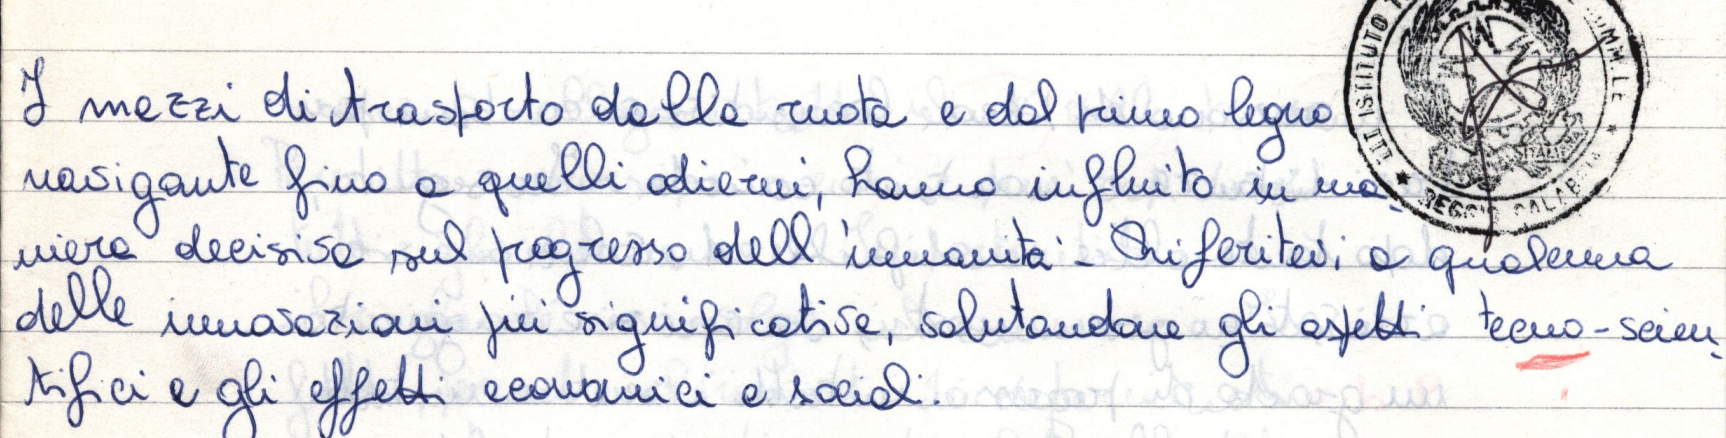 I mezzi di trasporto dalla ruota e dal primo legno
navigante fino a quelli odierni, hanno influito in ma-
niera decisiva sul progresso dell'umanità - Riferitevi a qualcuna
delle innovazioni più significative, valutandone gli aspetti tecno-scien-
tifici e gli effetti economici e sociali.
ISTITUTO
REGGIO CALABRIA